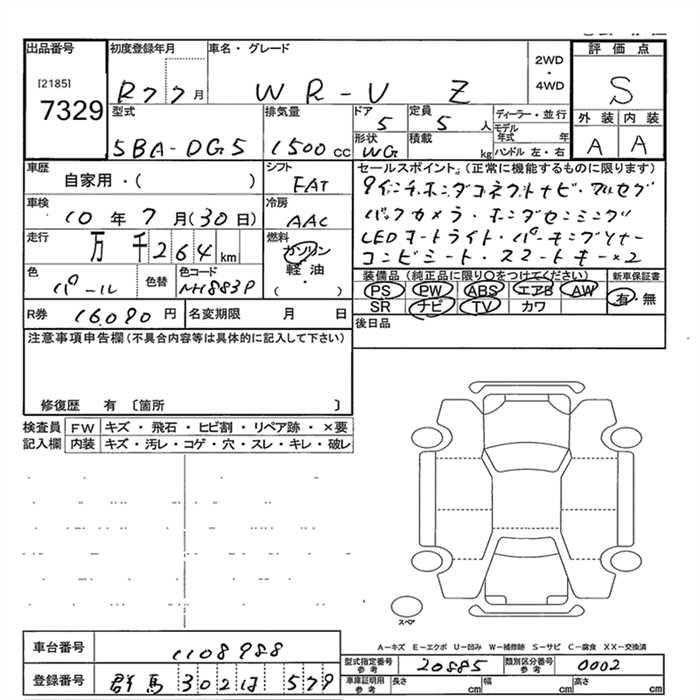 出品番号 初度登録年月 車名・グレード 2WD・4WD 評価点
[2185]
7329 R7 7月 WR-V Z S
型式 排気量 ドア 定員 ディーラー・並行 外装 内装
5BA-DG5 1500cc 5 5人 モデル年式 年 A A
形状 WG 積載 kg ハンドル 左・右
車歴 シフト セールスポイント.(正常に機能するものに限ります)
自家用・( ) FAT 9インチホンダコネクトナビ・フルセグ
車検 冷房 バックカメラ・ホンダセンシング
10年7月(30日) AAC LEDオートライト・パーキングソナー
走行 燃料 コンビシート・スマートキー×2
万千264km ガソリン
軽油
・
( )
色 色替 色コード 装備品(純正品に限り○をつけてください) 新車保証書
パール NH883P PS PW ABS エアB AW 有・無
SR ナビ TV カワ
R券 16,090円 名変期限 月 日 後日品
注意事項申告欄(不具合内容等は具体的に記入して下さい)
修復歴 有 〔箇所 〕
検査員 FW キズ・飛石・ヒビ割・リペア跡・×要
記入欄 内装 キズ・汚レ・コゲ・穴・スレ・キレ・破レ
スペア
A-キズ E-エクボ U-凹み W-補修跡 S-サビ C-腐食 XX-交換済
車台番号 1108988
型式指定番号 参考 20885 類別区分番号 参考 0002
登録番号 群馬302は579
車庫証明用 参考 長さ cm 幅 cm 高さ cm